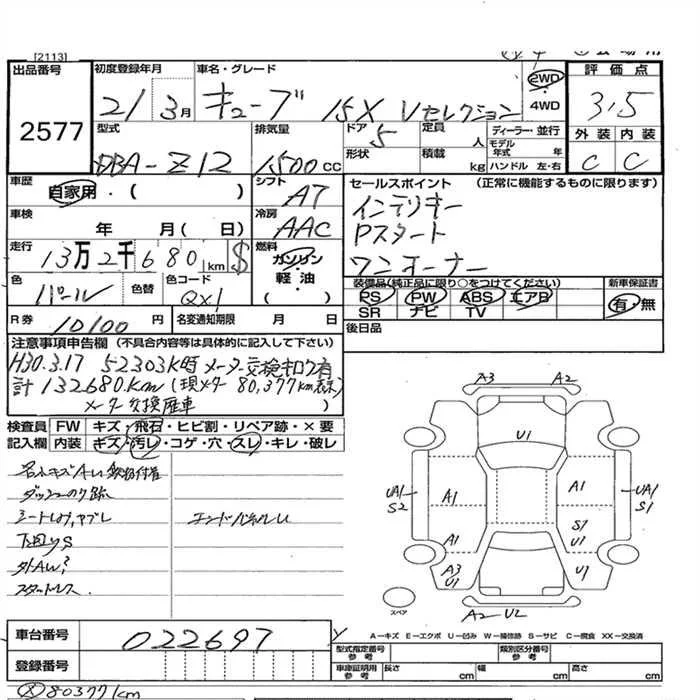 [2113]
出品番号
2577
初度登録年月
21 3月
車名・グレード
キューブ 15X Vセレクション
2WD
・
4WD
評価点
3.5
外装 内装
C C
型式
DBA-Z12
排気量
1500cc
ドア
5
形状
定員
人
積載
kg
ディーラー・並行
モデル
年式 年
ハンドル 左・右
車歴
自家用・( )
シフト
AT
セールスポイント (正常に機能するものに限ります)
インテリキー
Pスタート
ワンオーナー
車検
年 月( 日)
冷房
AAC
走行
13万2千680km $
燃料
ガソリン
・
軽油
色
パール
色替
色コード
QX1
装備品(純正品に限り○をつけてください)
PS PW ABS エアB
SR ナビ TV
新車保証書
有・無
R券
10100円
名変通知期限 月 日
後日品
注意事項申告欄 (不具合内容等は具体的に記入して下さい)
H30.3.17 52303K時 メーター交換キロク有
計132680Km(現メータ 80,377km表示)
メータ交換歴車
検査員 FW キズ・飛石・ヒビ割・リペア跡・×要
記入欄 内装 キズ・汚レ・コゲ・穴・スレ・キレ・破レ
エンドパネルU
スタットレス
A3 A2
U1
UA1
S2
A1
A1
UA1
S1
A1
S1
U1
A3
U1
U1
スペア
A2 U2
A-キズ E-エクボ U-凹み W-補修跡 S-サビ C-腐食 XX-交換済
車台番号
022697
登録番号
型式指定番号
参考
類別区分番号
参考
車庫証明用
参考
長さ cm
幅 cm
高さ cm
80377km